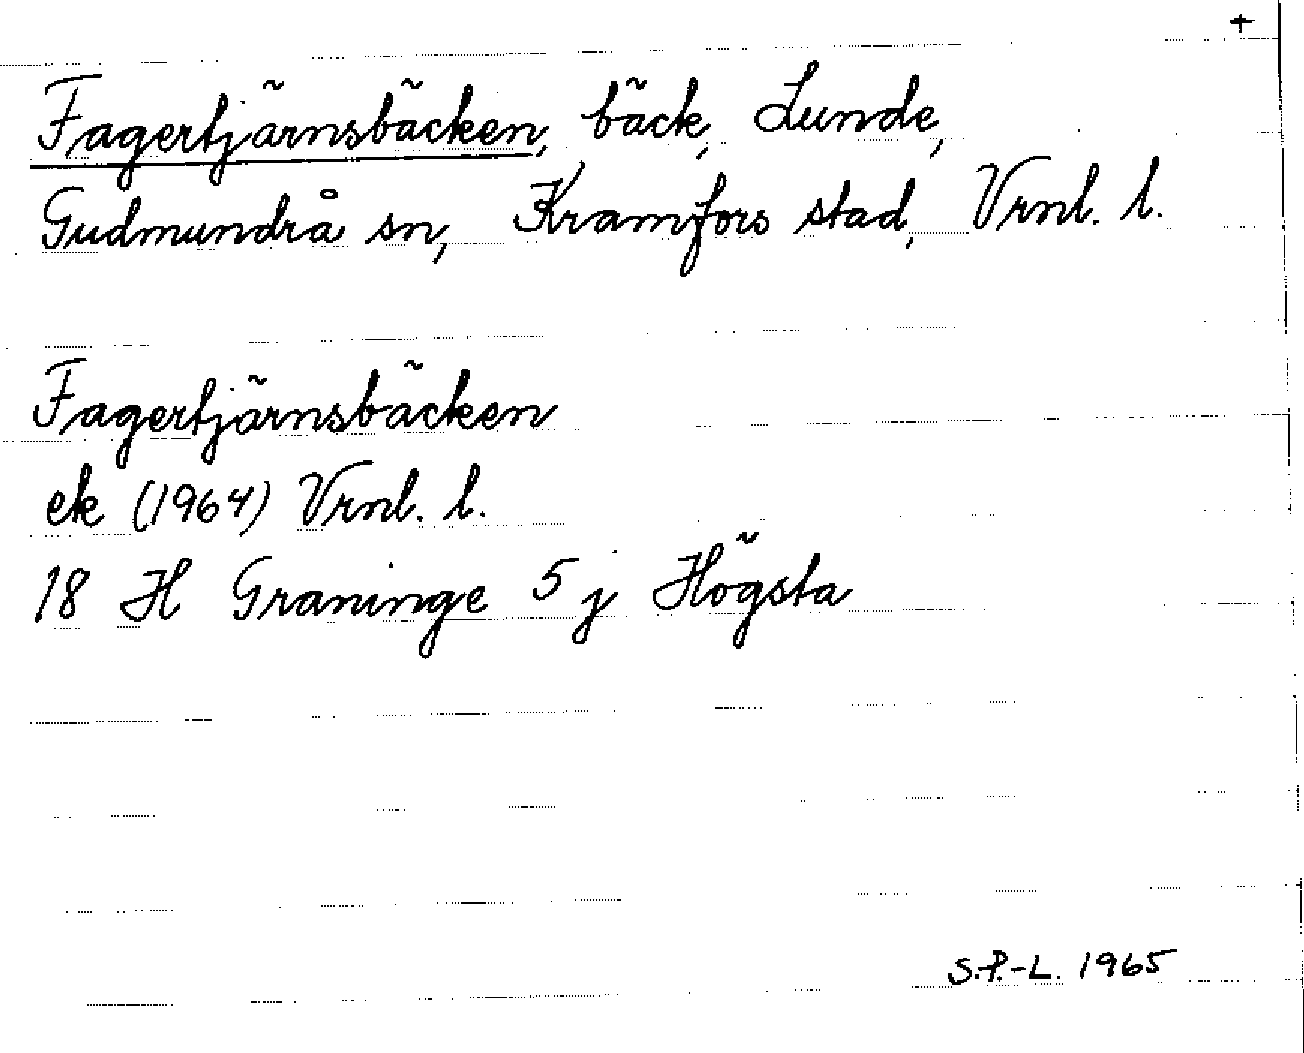 +
Fagertjärnsbäcken, bäck, Lunde,
Gudmundrå sn, Kramfors stad, Vrnl. l.
Fagertjärnsbäcken
ek (1964) Vrnl. l.
18 H Graninge 5 j Högsta
S.P.-L. 1965